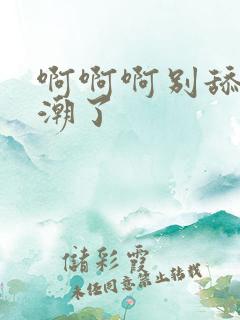 啊啊啊别舔
潮了
儲彩霞
未经同意禁止转载